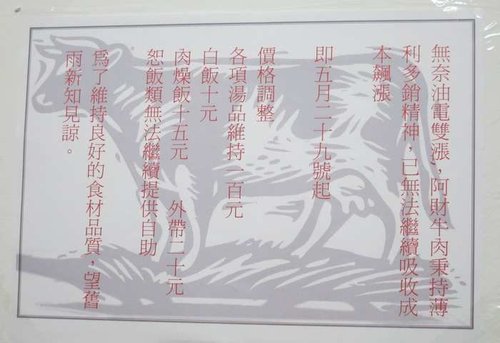 無奈油電雙漲，阿財牛肉秉持薄
利多銷精神，已無法繼續吸收成
本飆漲
即五月二十九號起
價格調整
各項湯品維持一百元
白飯十元
肉燥飯十五元　外帶二十元
恕飯類無法繼續提供自助
為了維持良好的食材品質，望舊
雨新知見諒。